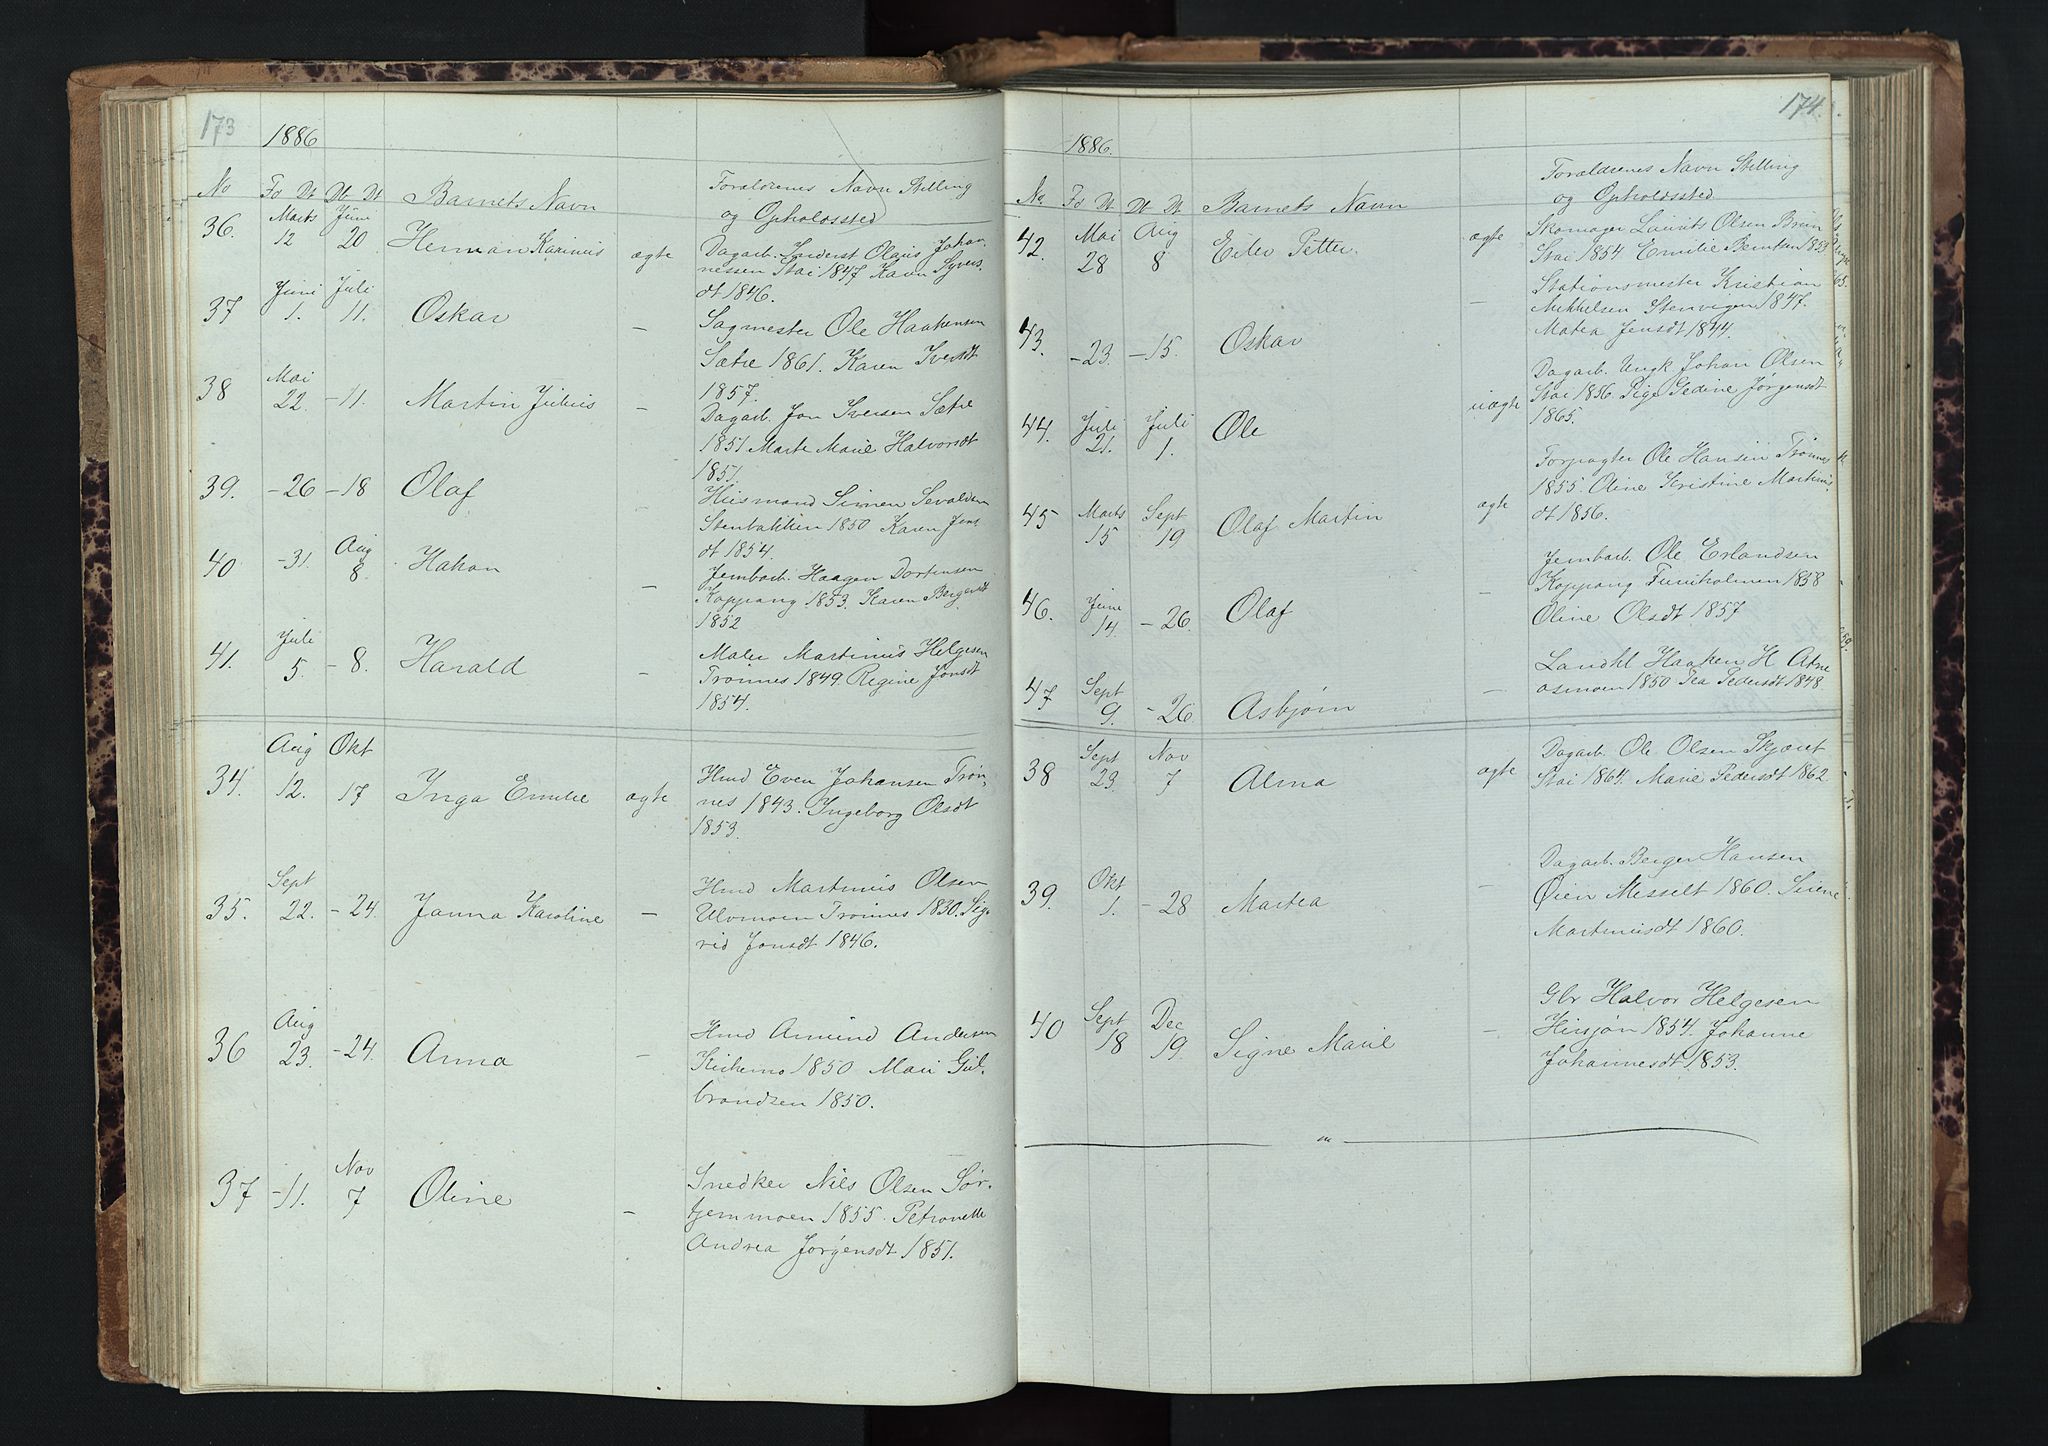 173
1886
No Fd Dt Db Dt Barnets Navn Forældrenes Navn Stilling
og Opholdssted
36. Marts 12 Juni 20. Herman Karinius ægte Dagarb. Inderst Olaus Johan
nessen Stai 1847 Karen Syvers
dt 1846.
37 Juni 1. Juli 11. Oskar — Sagmester Ole Haakensen
Sætre 1861. Karen Iversdt
1857.
38 Mai 22. - 11. Martin Julius — Dagarb. Jon Iversen Sætre
1851 Marte Marie Halvorsdt
1851.
39. - 26 - 18 Olaf — Husmand Simen Sevaldsen
Stenbakken 1850 Karen Jens
dt 1854.
40 - 31. Aug 8. Hakon — Jernbarb. Haagen
Koppang 1853. Karen Bergersdt
1852
41. Juli 5. - 8. Harald — Maler Martinus Helgesen
Trønnes 1849. Regine Jonsdt
1854.
34. Aug 12. Okt 17 Inga Emilie ægte Hmd Even Johansen Trøn-
nes 1843. Ingeborg Olsdt
1853.
35. Sept 22. - 24. Janna Karoline — Hmd Martinus Olsen
Ulvmoen Trønnes 1830. Sig-
rid Jonsdt 1846.
36 Aug 23. - 24. Anna — Hmd Amund Andersen
Kirkemo 1850 Mari Gul-
brandsen 1850.
37 - 11. Nov 7 Oline — Snedker Nils Olsen Sør-
tjernmoen 1855. Petronelle
Andrea Jørgensdt 1851.
174.
1886.
No Fd Dt Db Dt Barnets Navn Forældrenes Navn Stilling
og Opholdssted
42. Mai 28 Aug 8 Eilev Petter. ægte Skomager Lauritz Olsen Brun
Stai 1854 Emilie Berntsen 1853
43. - 23. - 15. Oskar — Stationsmester Kristian
Mikkelsen Stenvigen 1847.
Matea Jensdt 1844.
44. Juli 21. Juli 1. Ole uægte Dagarb. Ungk Johan Olsen
Stai 1856. Pige Pedine Jørgensdt
1865.
45 Marts 15 Sept 19 Olaf Martin ægte Forpagter Ole Hansen Trønnes
1855. Oline Kristine Martinus
dt 1856.
46. Juni 14. - 26. Olaf — Jernbarb. Ole Erlandsen
Koppang Furuholmen 1858
Oline Olsdt 1857
47 Sept 9. - 26 Asbjørn — Landhl Haaken H Atne
osmoen 1850 Pedersdt 1848.
38 Sept 23. Nov 7 Alma ægte Dagarb. Ole Olsen Skjæret
Stai 1864. Marie Pedersdt 1862.
39. Okt 1. - 28 Martea — Dagarb. Berger Hansen
Øien Messelt 1860. Sirene
Martinusdt 1860.
40 Sept 18 Dec 19. Signe Marie — Gbr Halvor Helgesen
Hirsjøn 1854. Johanne
Johannesdt 1853.